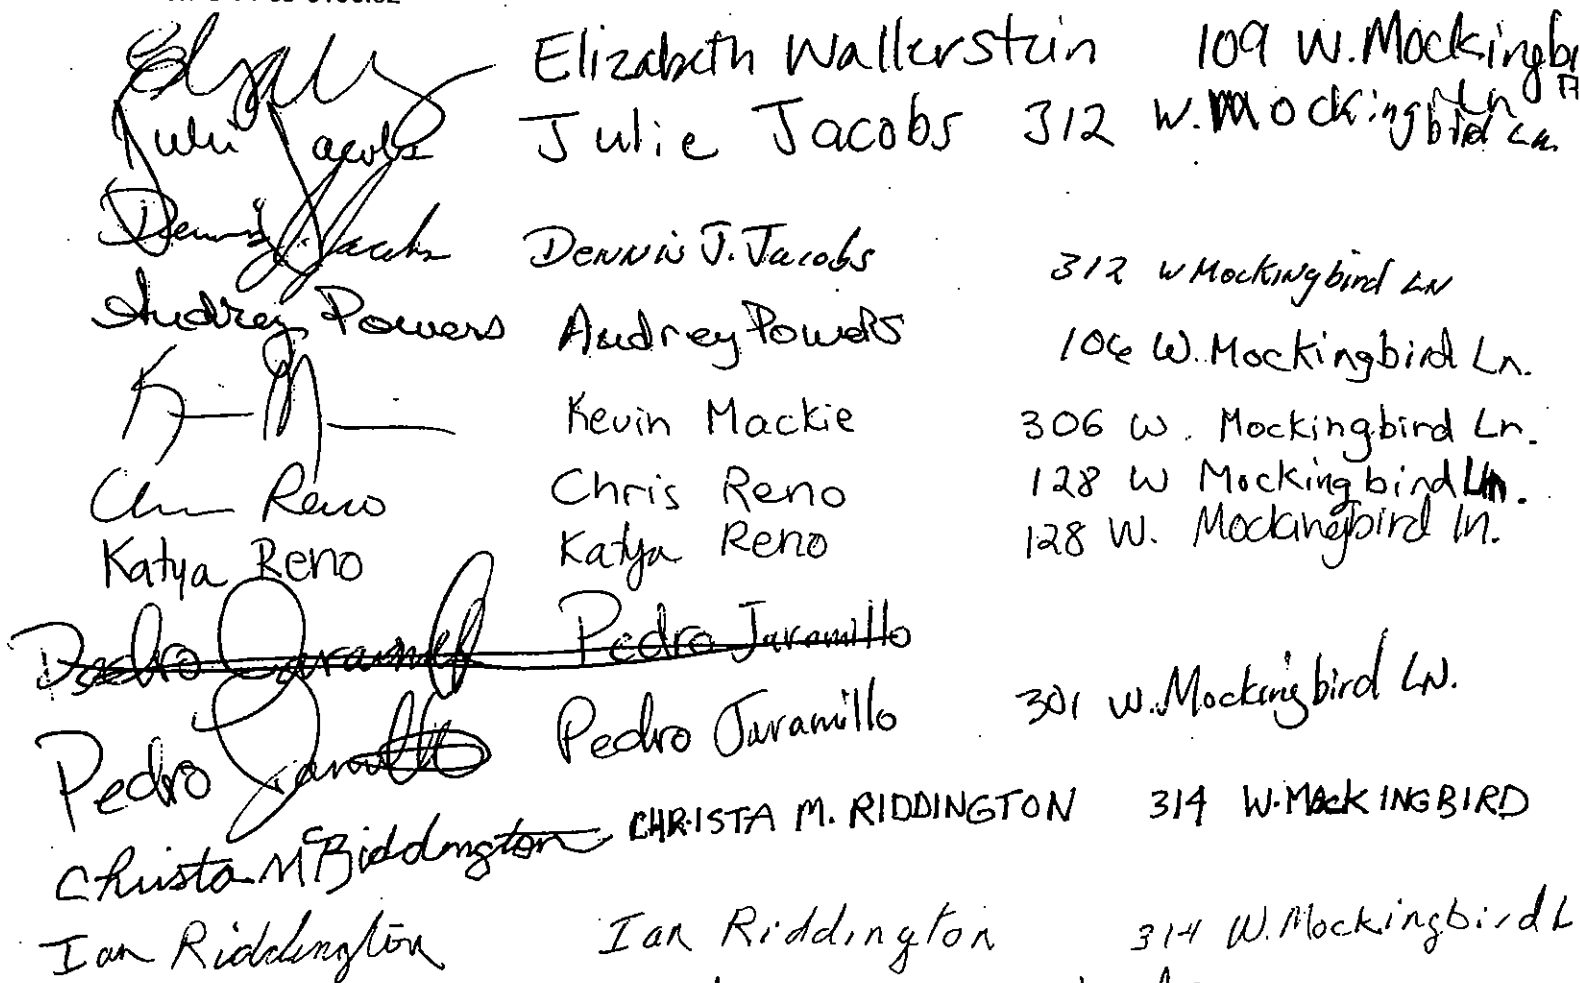 Elizabeth Wallerstein 109 W. Mockingbi
Ln
Julie Jacobs Julie Jacobs 312 W. Mockingbird Ln.
Dennis J. Jacobs Dennis J. Jacobs 312 W Mockingbird LN
Audrey Powers Audrey Powers 106 W. Mockingbird Ln.
Kevin Mackie 306 W. Mockingbird Ln.
Chris Reno Chris Reno 128 W Mockingbird Ln.
Katya Reno Katya Reno 128 W. Mockingbird ln.
Pedro Jaramillo Pedro Jaramillo
Pedro Jaramillo Pedro Jaramillo 301 W. Mockingbird LN.
Christa M Riddington CHRISTA M. RIDDINGTON 314 W. MOCKINGBIRD
Ian Riddington Ian Riddington 314 W. Mockingbird L